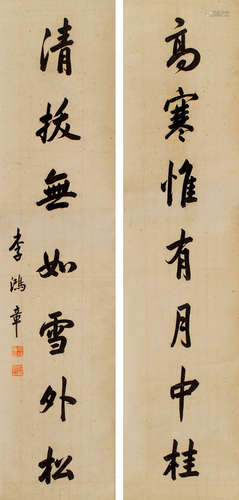 高寒惟有月中桂
清拔無如雪外松
李鴻章